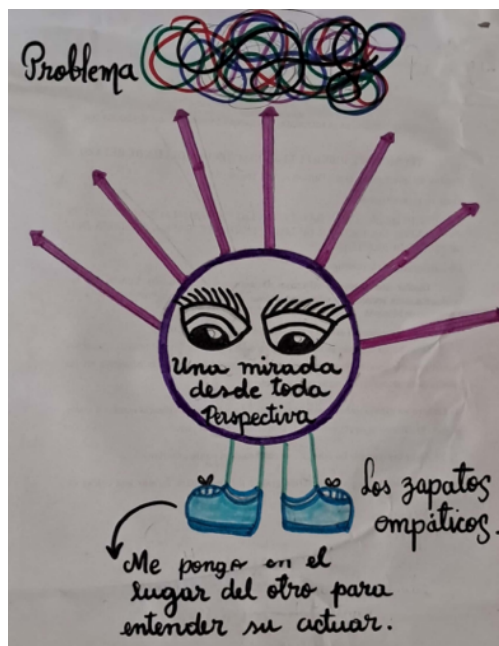 Problema
Una mirada
desde toda
Perspectiva
Los zapatos
empáticos.
Me pongo en el
lugar del otro para
entender su actuar.